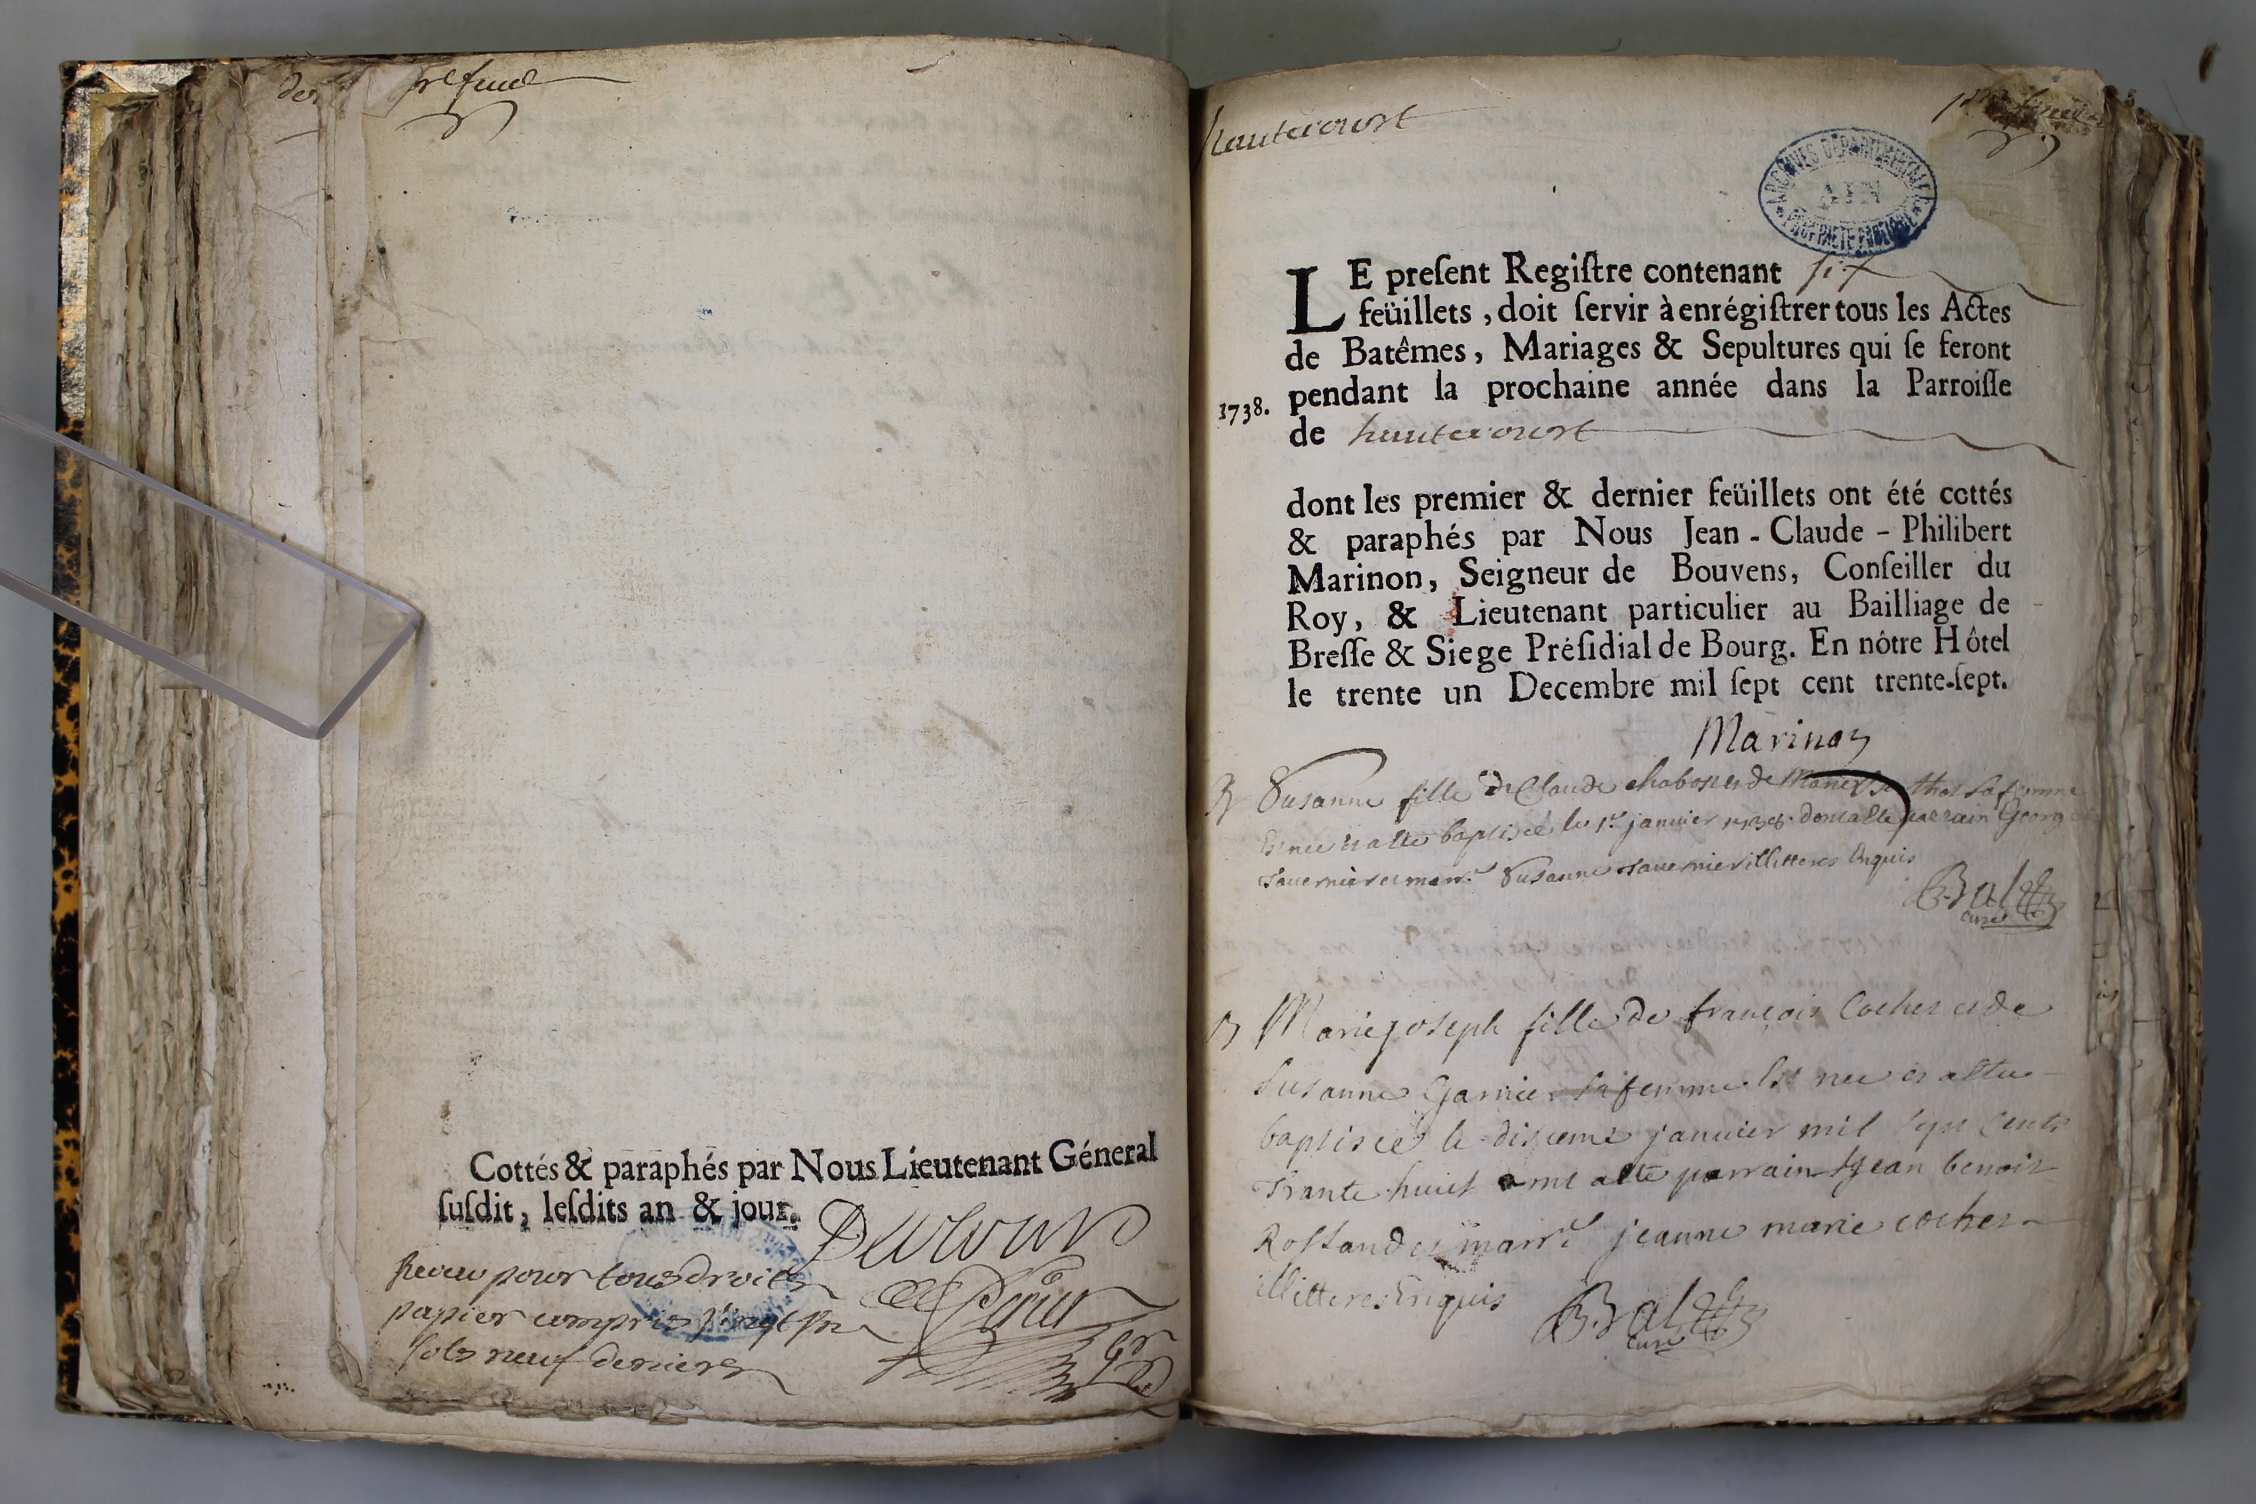 Cottés & paraphés par Nous Lieutenant Géneral
ſuſdit, leſdits an & jour.
Receu pour tous droits
papier compris vingt
sols neuf deniers
hautecourt
ARCHIVES DÉPARTEMENTALES
AIN
PROPRIÉTÉ PUBLIQUE
LE preſent Regiſtre contenant six
feüillets, doit ſervir à enrégiſtrer tous les Actes
de Batêmes, Mariages & Sepultures qui ſe feront
pendant la prochaine année dans la Parroiſſe
1738.
de hautecourt
dont les premier & dernier feüillets ont été cottés
& paraphés par Nous Jean-Claude-Philibert
Marinon, Seigneur de Bouvens, Conſeiller du
Roy, & Lieutenant particulier au Bailliage de
Breſſe & Siege Préſidial de Bourg. En nôtre Hôtel
le trente un Decembre mil ſept cent trente-ſept.
Marinon
B Susanne fille de Claude et de Marie sa femme
Est nee et atte baptisee le 1r janvier 1738 dont atte parrain George
Tavernier et marr.e Susanne Tavernier illitteres Enquis
curé
B Marie joseph fille de françois Cocher et de
Susanne Garnier sa femme Est nee et attee
baptisee le janvier mil sept Cents
Trante huict ont atte parrain jean benoit
Rolland et marr.e jeanne marie cocher
illitteres Enquis
curé